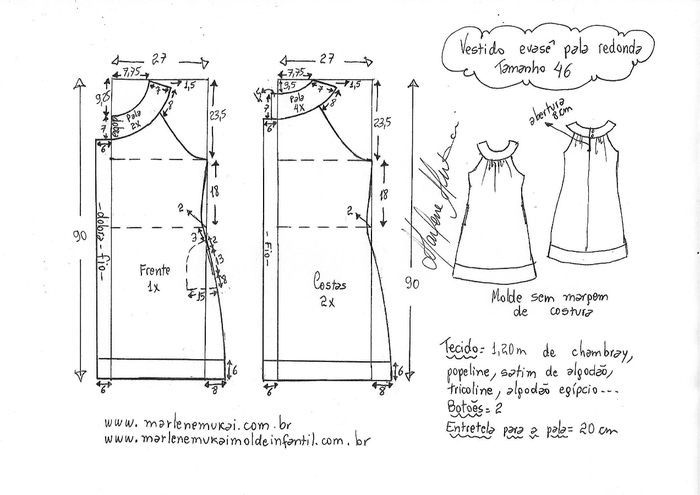 Vestido evasê pala redonda
Tamanho 46
27
7,75
1,5
7
8
9,25
dobra
Pala
2x
7
6
23,5
18
2
90
-dobra-fio-
3
2
13
8
15
Frente
1x
6
6
8
27
7,75
3,5
1,5
7
8
Pala
4x
7
6
23,5
18
2
90
-Fio-
Costas
2x
6
6
8
abertura
8cm
Marlene Mukai
Molde sem margem
de costura
Tecido= 1,20m de chambray,
popeline, satim de algodão,
tricoline, algodão egípcio---
Botões= 2
Entretela para a pala= 20 cm
www.marlenemukai.com.br
www.marlenemukaimoldeinfantil.com.br